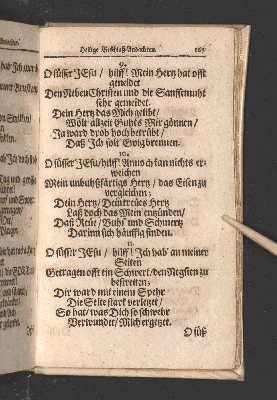 Heilige Beschluß-Andachten. 165
9.
O süsser JEsu / hilff! Mein Hertz hat offt
geneidet
Den Neben Christen und die Sanfftmuht
sehr gemeidet.
Dein Hertz das Mich gelibt /
Wolt allzeit Guhtes Mir gönnen /
Ja ward drob hoch betrübt /
Daß Ich solt Ewig brennen.
O süsser JEsu / hilff! Annoch kan nichts er-
weichen
Mein unbuhßfärtigs Hertz / das Eisen zu
vergleichen:
Dein Hertz / Dein treües Hertz
Laß doch das Mein entzünden /
Daß Reüe / Buhs' und Schmertz
Darinn sich häuffig finden.
11.
O süsser JEsu / hilff! Ich hab' an meiner
Seiten
Getragen offt ein Schwert / den Negsten zu
bestreiten;
Dir ward mit einem Spehr
Die Seite starck verletzt /
So hat / was Dich so schwehr
Verwundet / Mich ergetzt.
O süß